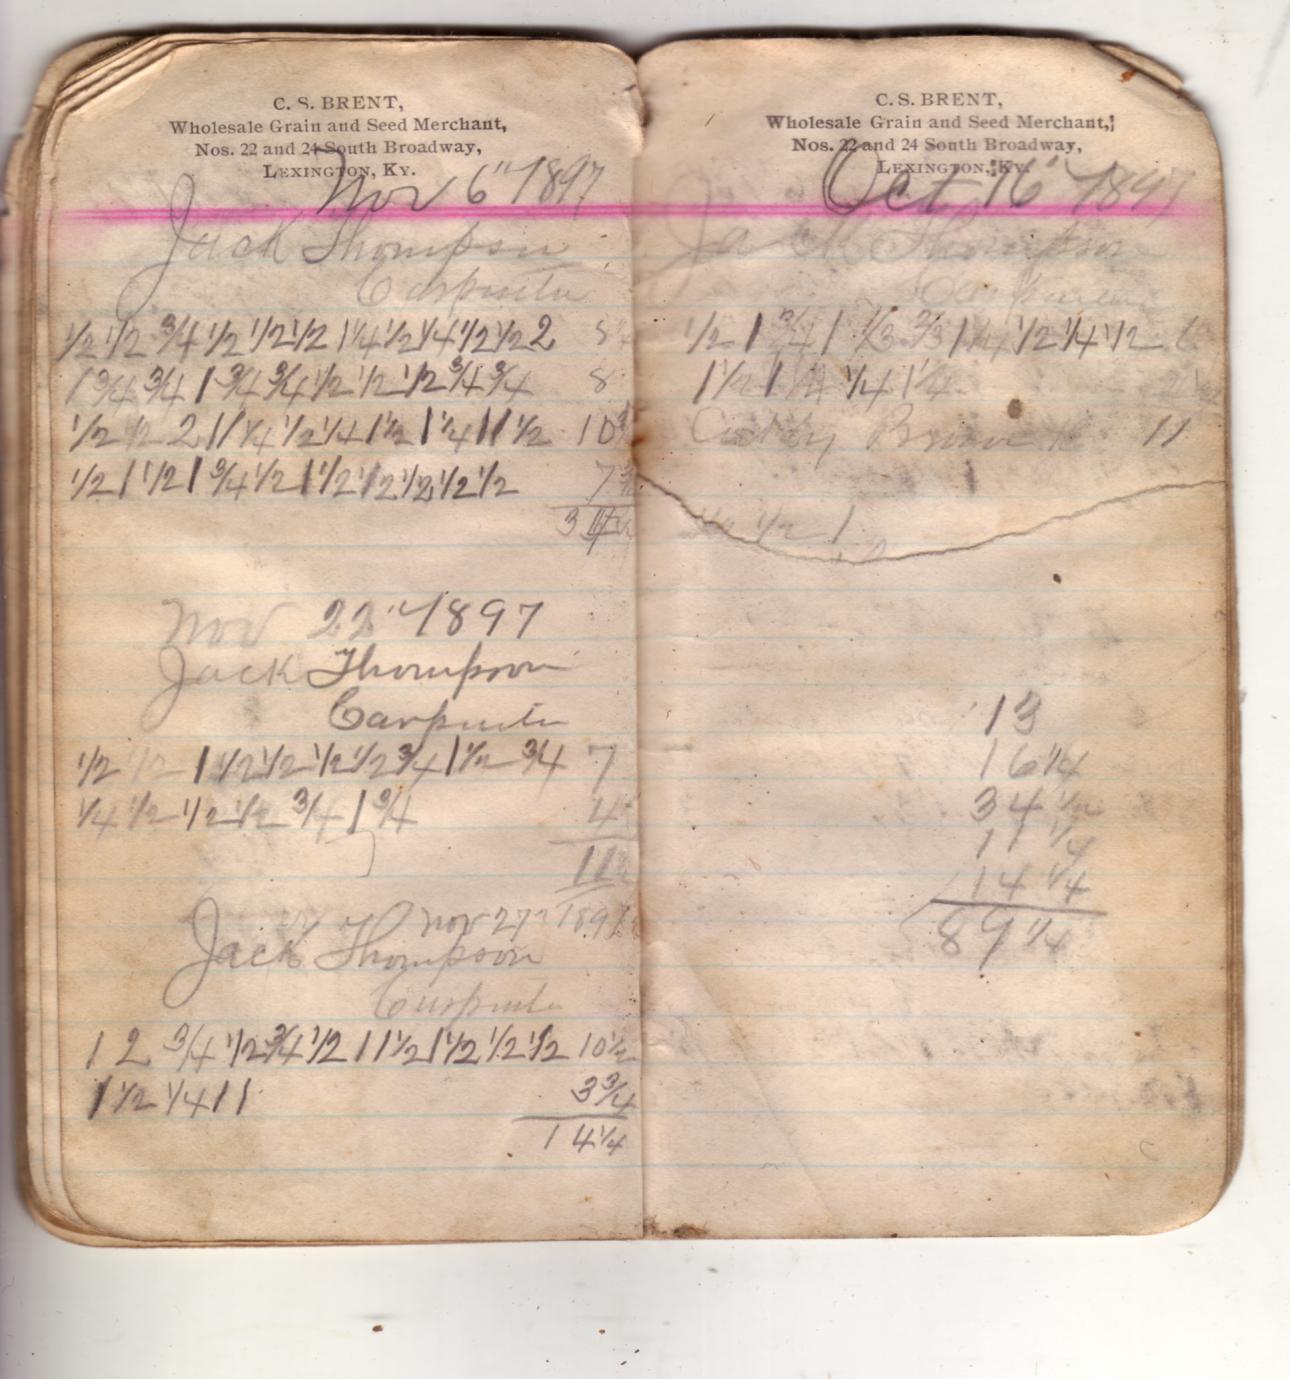 C. S. BRENT,
Wholesale Grain and Seed Merchant,
Nos. 22 and 24 South Broadway,
LEXINGTON, KY.
Nov 6" 1897
Jack Thompson
Carpenter
1/2 1/2 3/4 1/2 1/2 1/2 1 1/4 1/2 1/4 1/2 1/2 2 8
1 3/4 3/4 1 3/4 3/4 1/2 1/2 1/2 3/4 3/4 8
1/2 1/2 2 1 1 1/4 1/2 1/4 1 1/2 1 1/4 1 1 1/2 10
1/2 1 1/2 1 3/4 1/2 1 1/2 1/2 1/2 1/2 1/2 7
34
Nov 22" 1897
Jack Thompson
Carpenter
1/2 1/2 1 1/2 1/2 1/2 1/2 3/4 1 1/2 3/4 7
1/4 1/2 1/2 1/2 3/4 1 3/4 4
11
Nov 27 1897
Jack Thompson
Carpenter
1 2 3/4 1/2 3/4 1/2 1 1 1/2 1 1/2 1/2 1/2 10 1/2
1 1/2 1/4 1 1 3 3/4
14 1/4
C. S. BRENT,
Wholesale Grain and Seed Merchant,
Nos. 22 and 24 South Broadway,
LEXINGTON, KY.
Oct 16" 1897
Jack Thompson
Carpenter
1/2 1 3/4 1 1/3 2/3 1 1/4 1/2 1/4 1/2 6
1 1/2 1 1/4 1/4 1 1/4
11
1/2 1
13
16 1/4
34 1/2
11 1/4
14 1/4
89 1/4